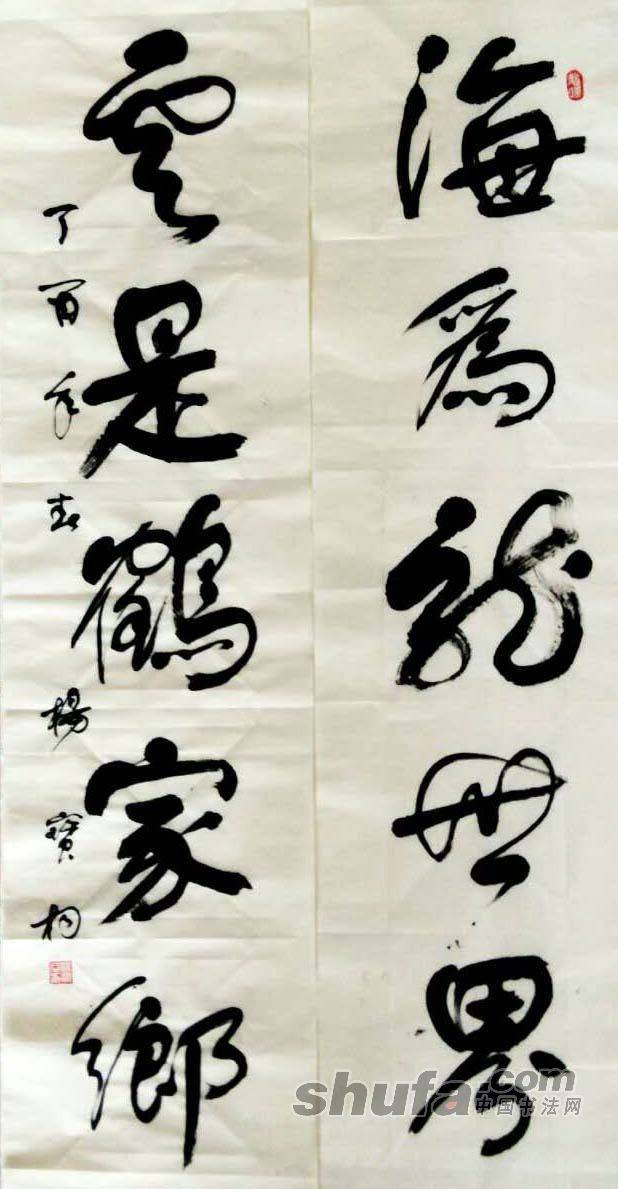 海為龍世界
雲是鶴家鄉
丁酉年春楊寶桐
shufa.com
中国书法网